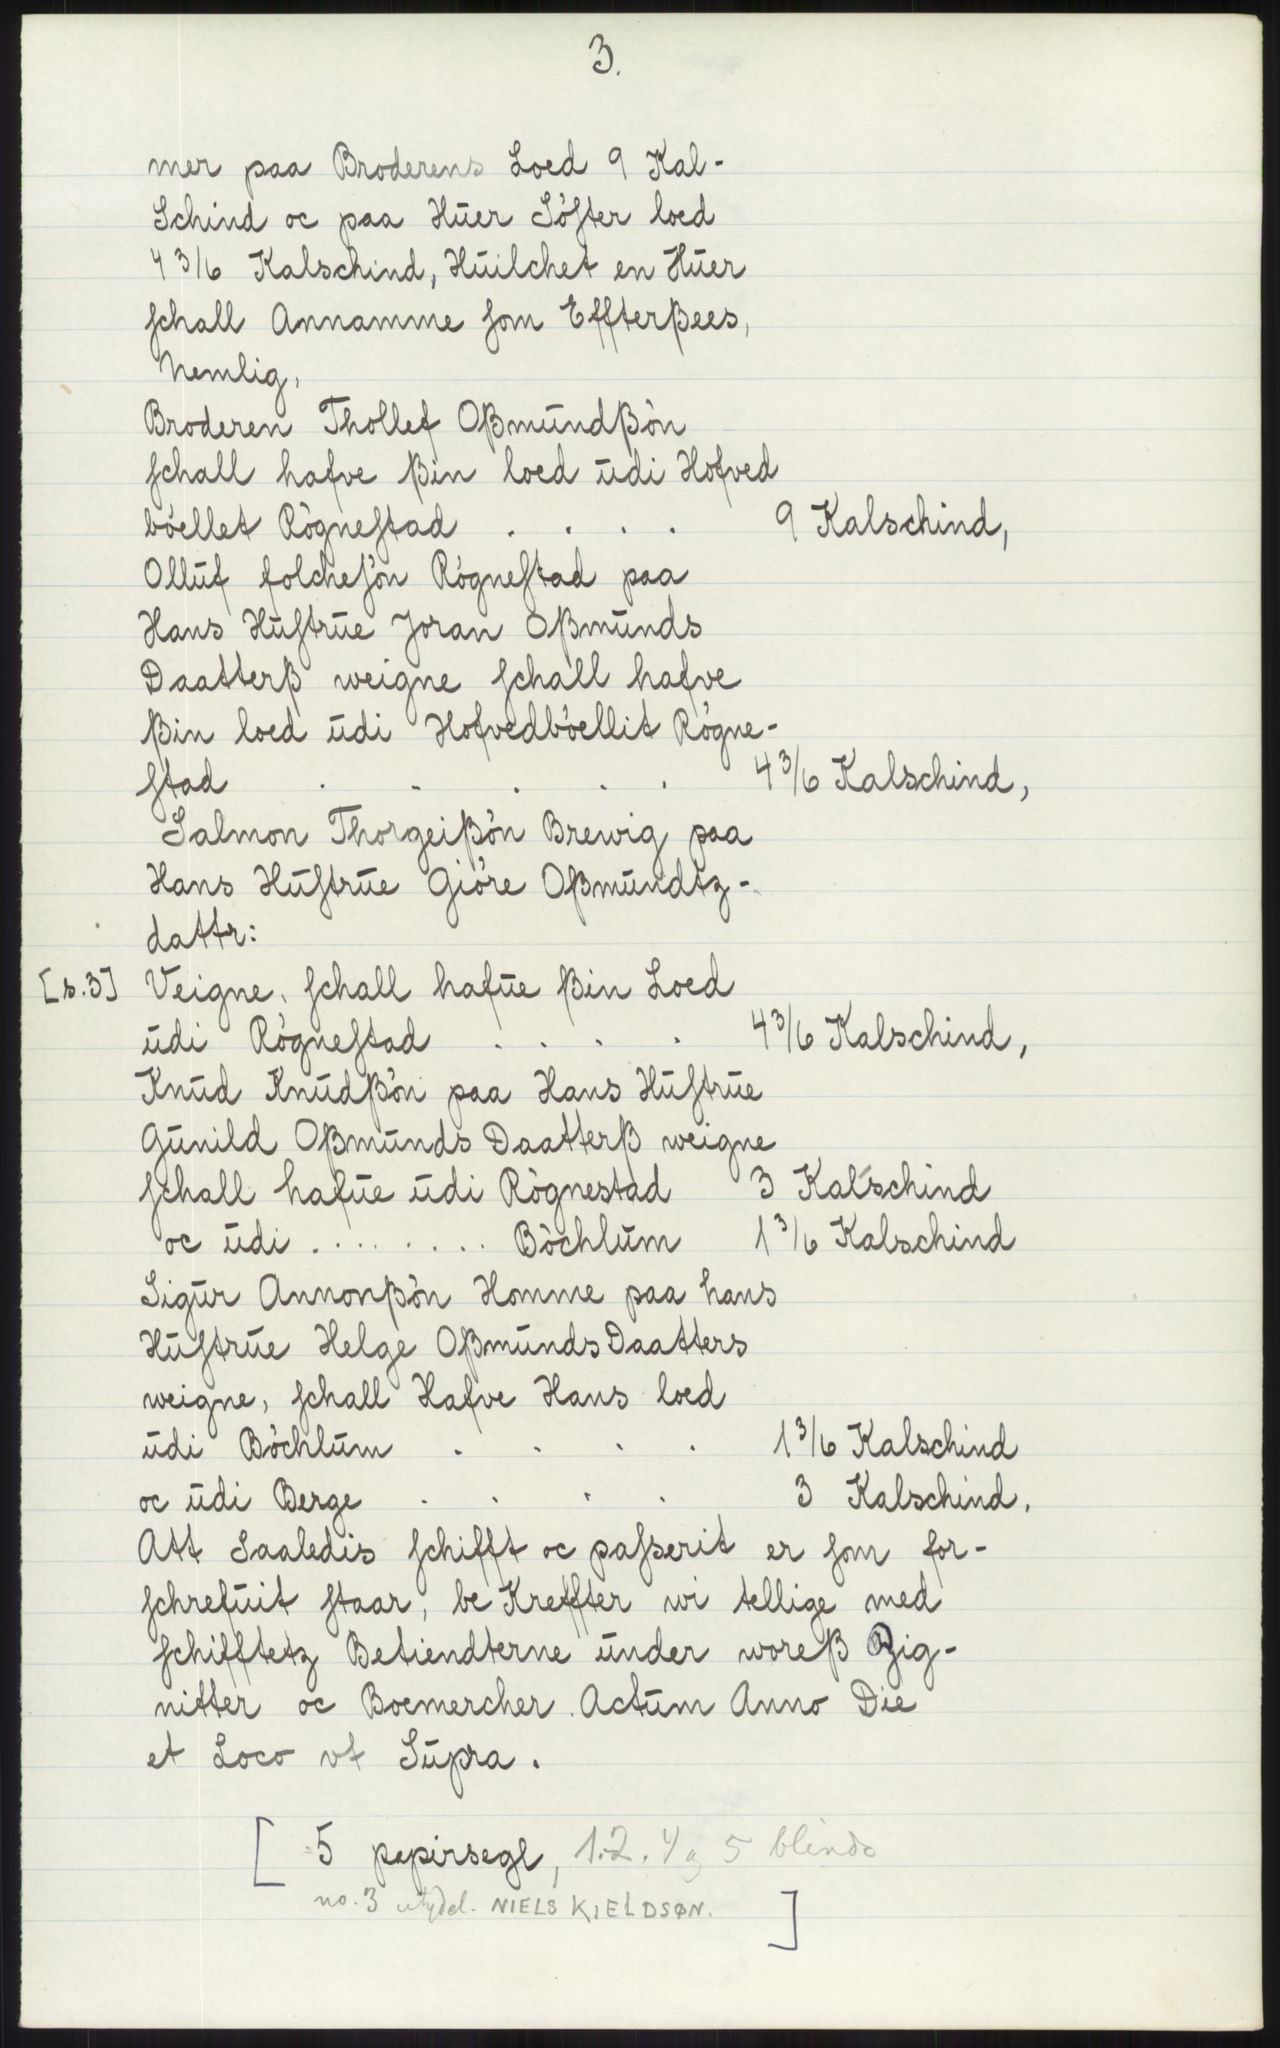 3.
mer paa Broderens Loed 9 Kal-
Schind oc paa Huer Söster loed
4 3/6 Kalschind, Huilchet en Huer
schall Annamme som Effterßees,
Nemlig,
Broderen Thollef Oßmundßön
schall hafve ßin loed udi Hofved
böellet Rögnestad . . . . 9 Kalschind,
Olluf folchesön Rögnestad paa
Hans Hustrue Joran Oßmunds
Daatterß weigne schall hafve
ßin loed udi Hofvedböellit Rögne-
stad . . . . . 4 3/6 Kalschind,
Salmon Thorgeißön Brewig paa
Hans Hustrue Giöre Oßmundtz-
dattr:
[s.3] Veigne, schall hafue ßin Loed
udi Rögnestad . . . . 4 3/6 Kalschind,
Knud Knudßön paa Hans Hustrue
Gunild Oßmunds Daatterß weigne
schall hafue udi Rögnestad 3 Kalschind
oc udi . . . . . . . . Böchlum 1 3/6 Kalschind
Sigur Annonßön Homme paa hans
Hustrue Helge Oßmunds Daatters
weigne, schall Hafve Hans loed
udi Böchlum . . . . 1 3/6 Kalschind
oc udi Berge . . . . 3 Kalschind.
Att Saaledis schifft oc passerit er som for-
schrefuit staar, be Kreffter wi tellige med
schifftetz Betiendterne under woreß Zig-
nitter oc Boemercher. Actum Anno Die
et Loco vt Supra.
[ 5 papirsegl, 1.2. 4 og 5 blinde
no. 3 utydel. NIELS KIELDSØN. ]